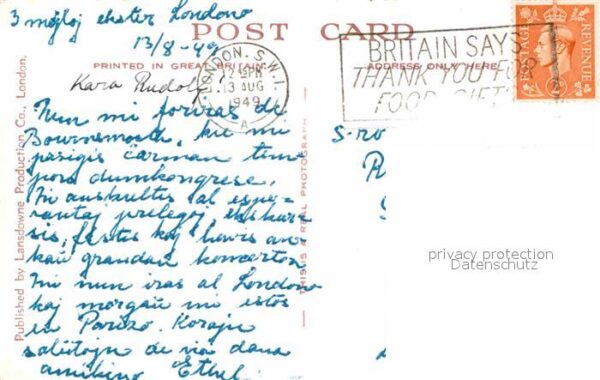 3 mejloj ekster Londono
13/8-49
POST CARD
PRINTED IN GREAT BRITAIN
ADDRESS ONLY HERE
LONDON. S.W.1.
12 15 PM
13 AUG
1949
A
BRITAIN SAYS
THANK YOU FOR
FOOD GIFTS
POSTAGE
REVENUE
Kara Rudolf
Nun mi forviras de
Bournemouth, kie mi
pasigis ĉarman tem-
pon dumkongrese.
Ni auskultis al espe-
rantaj prelegoj, ekskur-
sis, festis kaj havis an-
kaŭ grandan koncerton
Mi nun iras al Londono
kaj morgaŭ mi estos
en Parizo. Korajn
salutojn de via dana
amikino Ethel.
S-ro
Published by Lansdowne Production Co., London.
THIS IS A REAL PHOTOGRAPH
privacy protection
Datenschutz